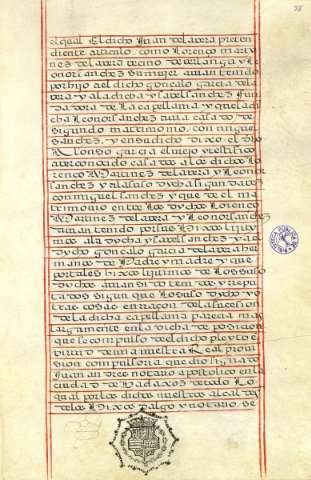 el qual El dicho Juan de lavera preten
diente articulo, como Lorenço marty
nez de lavera vezino de y
leonor sanchez su muger avian tenido
por hijo al dicho gonçalo garcia de la
vera y a la dicha ysabel sanchez fun
dadora de la capellania y que la di
cha leonor sanchez avia casado de
segundo matrimonio, con miguel
sanchez, y en su dicho dixo, el dho
Alonso garcia el viejo y testifico
aver conocido casados a los dichos lo
renço Martinez de lavera y leonor
sanchez y a la susodycha segunda vez
con miguel sanchez y que de el ma
trimonio entre los dychos lorenço
Martinez de lavera y leonor sanchez
avian tenido por sus hixos lijity
mos a la dycha ysabel sanchez y al
dycho gonçalo garcia de lavera her
manos de Padre y madre y que
por tales hixos lijitimos de los suso
dychos avian sido tenidos y repu
tados sigun que lo susodycho y o
tras cosas en raçon de la sucesion
de la dicha capellania parecia mas
largamente en la dicha deposicion
que se compulso del dicho pleyto e
virtud de una nuestra Real provi
sion compulsoria que dio signada
Juan notario apostolico en la
ciudad de Badaxoz de todo lo
qual por los dichos nuestros alcaldes
de los Hixosdalgo y notario, se